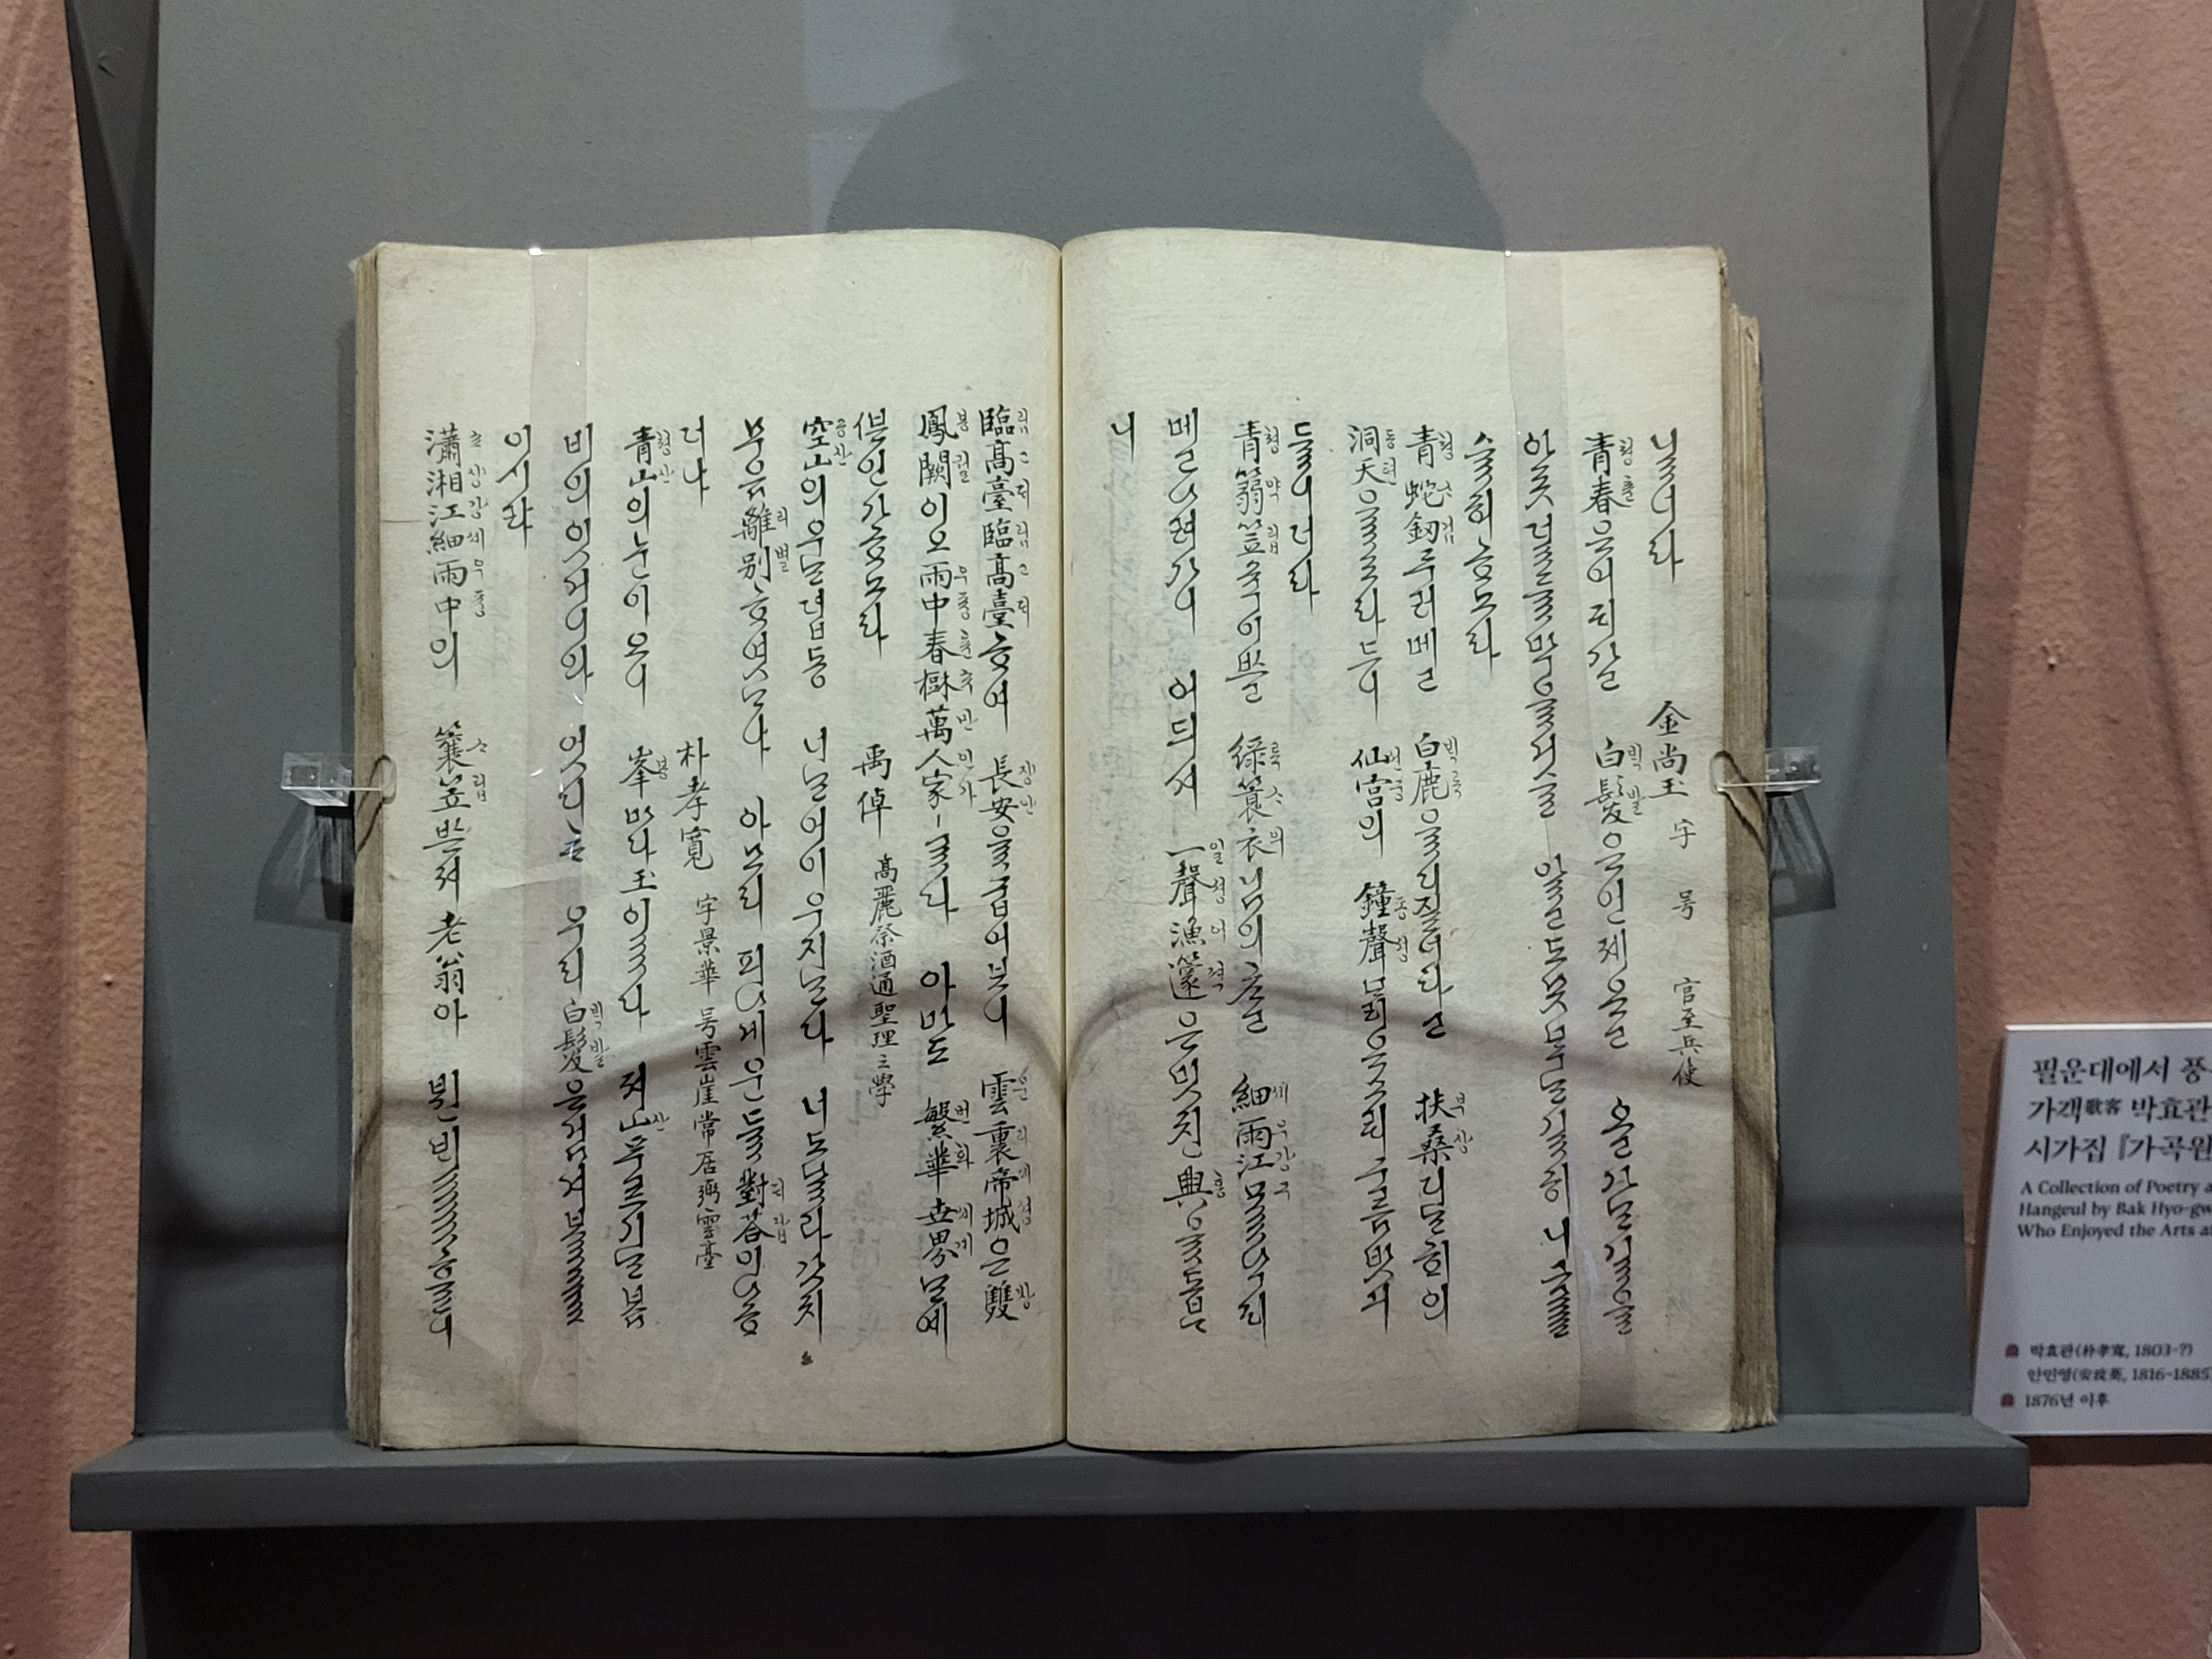 니르더라 金尙玉 字 号 官至兵使
靑春은 어듸 가고 白髮은 언제 온고 오고 가는 길을
아돗던들 막을거슬 알고도 못 막는 길히니 그를
슬허 ᄒᆞ노라
靑蛇釼 두러메고 白鹿을 지즐타고 扶桑 지는 ᄒᆡ의
洞天으로 도라드니 仙宮의 鐘聲 맑은 소ᄅᆡ 구름 밧긔
들니더라
靑篛笠 숙이 쓰고 綠簑衣 님의 ᄎᆞ고 細雨江
메고 나려가니 어듸셔 一聲漁篴은 밧친 興을 돕ᄂᆞ
니
臨高臺臨高臺ᄒᆞ여 長安을 굽어보니 雲裏帝城은 雙
鳳闕이오 雨中春樹萬人家ㅣ로다 아마도 繁華世界는 예
ᄲᅮᆫ인가 ᄒᆞ노라 禹倬 高麗祭酒通聖理之學
空山의 우는 뎝동 너는 어이 우지는다 너도 날과 갓치
무음 離別ᄒᆞ엿ᄂᆞ냐 아무리 피나게 운들 對答이나 ᄒᆞ
더냐 朴孝寬 字景華 号雲崖常居弼雲臺
靑山의 눈이 오니 峯마다 玉이로다 져 山 푸르기는 봄
비의 잇거니와 엇지 우리 白髮은 검겨 볼 줄
이시랴
瀟湘江細雨中의 簑笠 쓴 져 老翁아 뷘 ᄇᆡ
필운대에서 풍
가객歌客 박효관
시가집 『가곡원
A Collection of Poetry a
Hangeul by Bak Hyo-gw
Who Enjoyed the Arts a
박효관(朴孝寬, 1803-?)
안민영(安玟英, 1816-1885)
1876년 이후